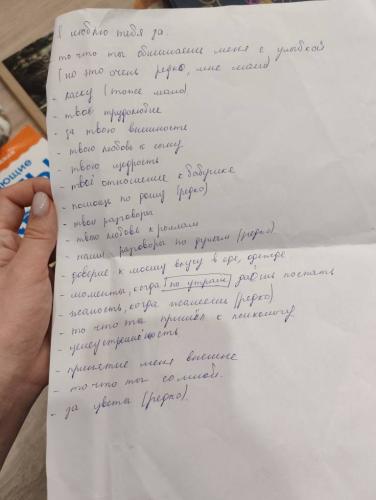 Я люблю тебя за:
то что ты обнимаешь меня с улыбкой
(но это очень редко, мне мало)
- ласку (тоже мало)
- твоё трудолюбие
- за твою внешность
- твою любовь к сыну
- твою щедрость
- твоё отношение к бабушке
- помощь по дому (редко)
- твои разговоры
- твою любовь к
- наши разговоры по душам (редко)
- доверие к моему вкусу в еде, одежде
- моменты, когда по утрам даёшь поспать
- жалость, когда жалеешь (редко)
- то что ты пришёл к психологу
- целеустремлённость
- принятие меня внешне
- то что ты со мной.
- за цветы (редко).